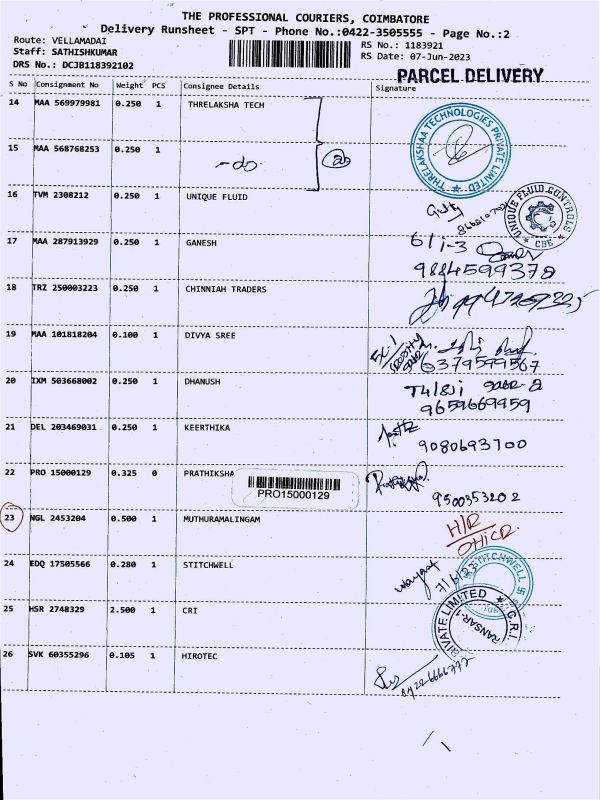 THE PROFESSIONAL COURIERS, COIMBATORE
Delivery Runsheet - SPT - Phone No.:0422-3505555 - Page No.:2
Route: VELLAMADAI
Staff: SATHISHKUMAR
DRS No.: DCJB118392102
RS No.: 1183921
RS Date: 07-Jun-2023
PARCEL DELIVERY
S No Consignment No Weight PCS Consignee Details Signature
14 MAA 569979981 0.250 1 THRELAKSHA TECH
THRELAKSHAA TECHNOLOGIES PRIVATE LIMITED
15 MAA 568768253 0.250 1 -do-
16 TVM 2308212 0.250 1 UNIQUE FLUID
UNIQUE FLUID CONTROLS CBE
17 MAA 287913929 0.250 1 GANESH
9884599378
18 TRZ 250003223 0.250 1 CHINNIAH TRADERS
19 MAA 101818204 0.100 1 DIVYA SREE
6379599567
20 IXM 503668002 0.250 1 DHANUSH
9659669959
21 DEL 203469031 0.250 1 KEERTHIKA
9080693700
22 PRO 15000129 0.325 0 PRATHIKSHA
PRO15000129
9500353202
23 NGL 2453204 0.500 1 MUTHURAMALINGAM
24 EDQ 17505566 0.280 1 STITCHWELL
7/6/23
STITCHWELL
25 HSR 2748329 2.500 1 CRI
PRIVATE LIMITED C.R.I.
26 SVK 60355296 0.105 1 HIROTEC
0422-6666777